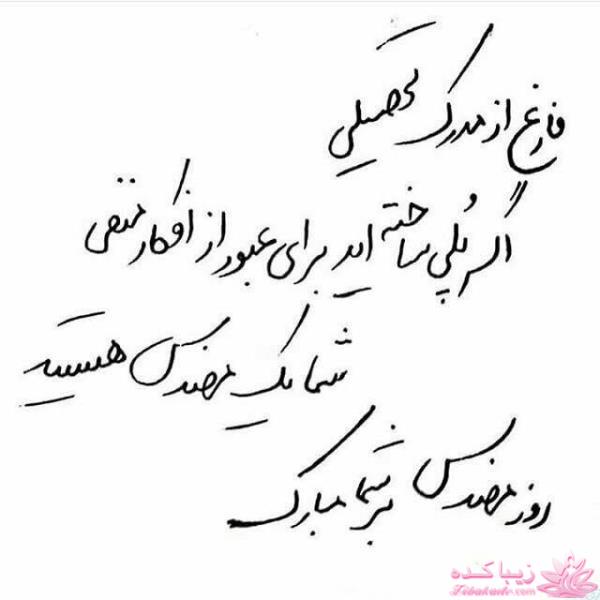 فارغ از مدرک تحصیلی
اگر پُلی ساخته اید برای عبور از افکار منفی
شما یک مهندس هستید
روز مهندس بر شما مبارک
زیباکده
Zibakade.com